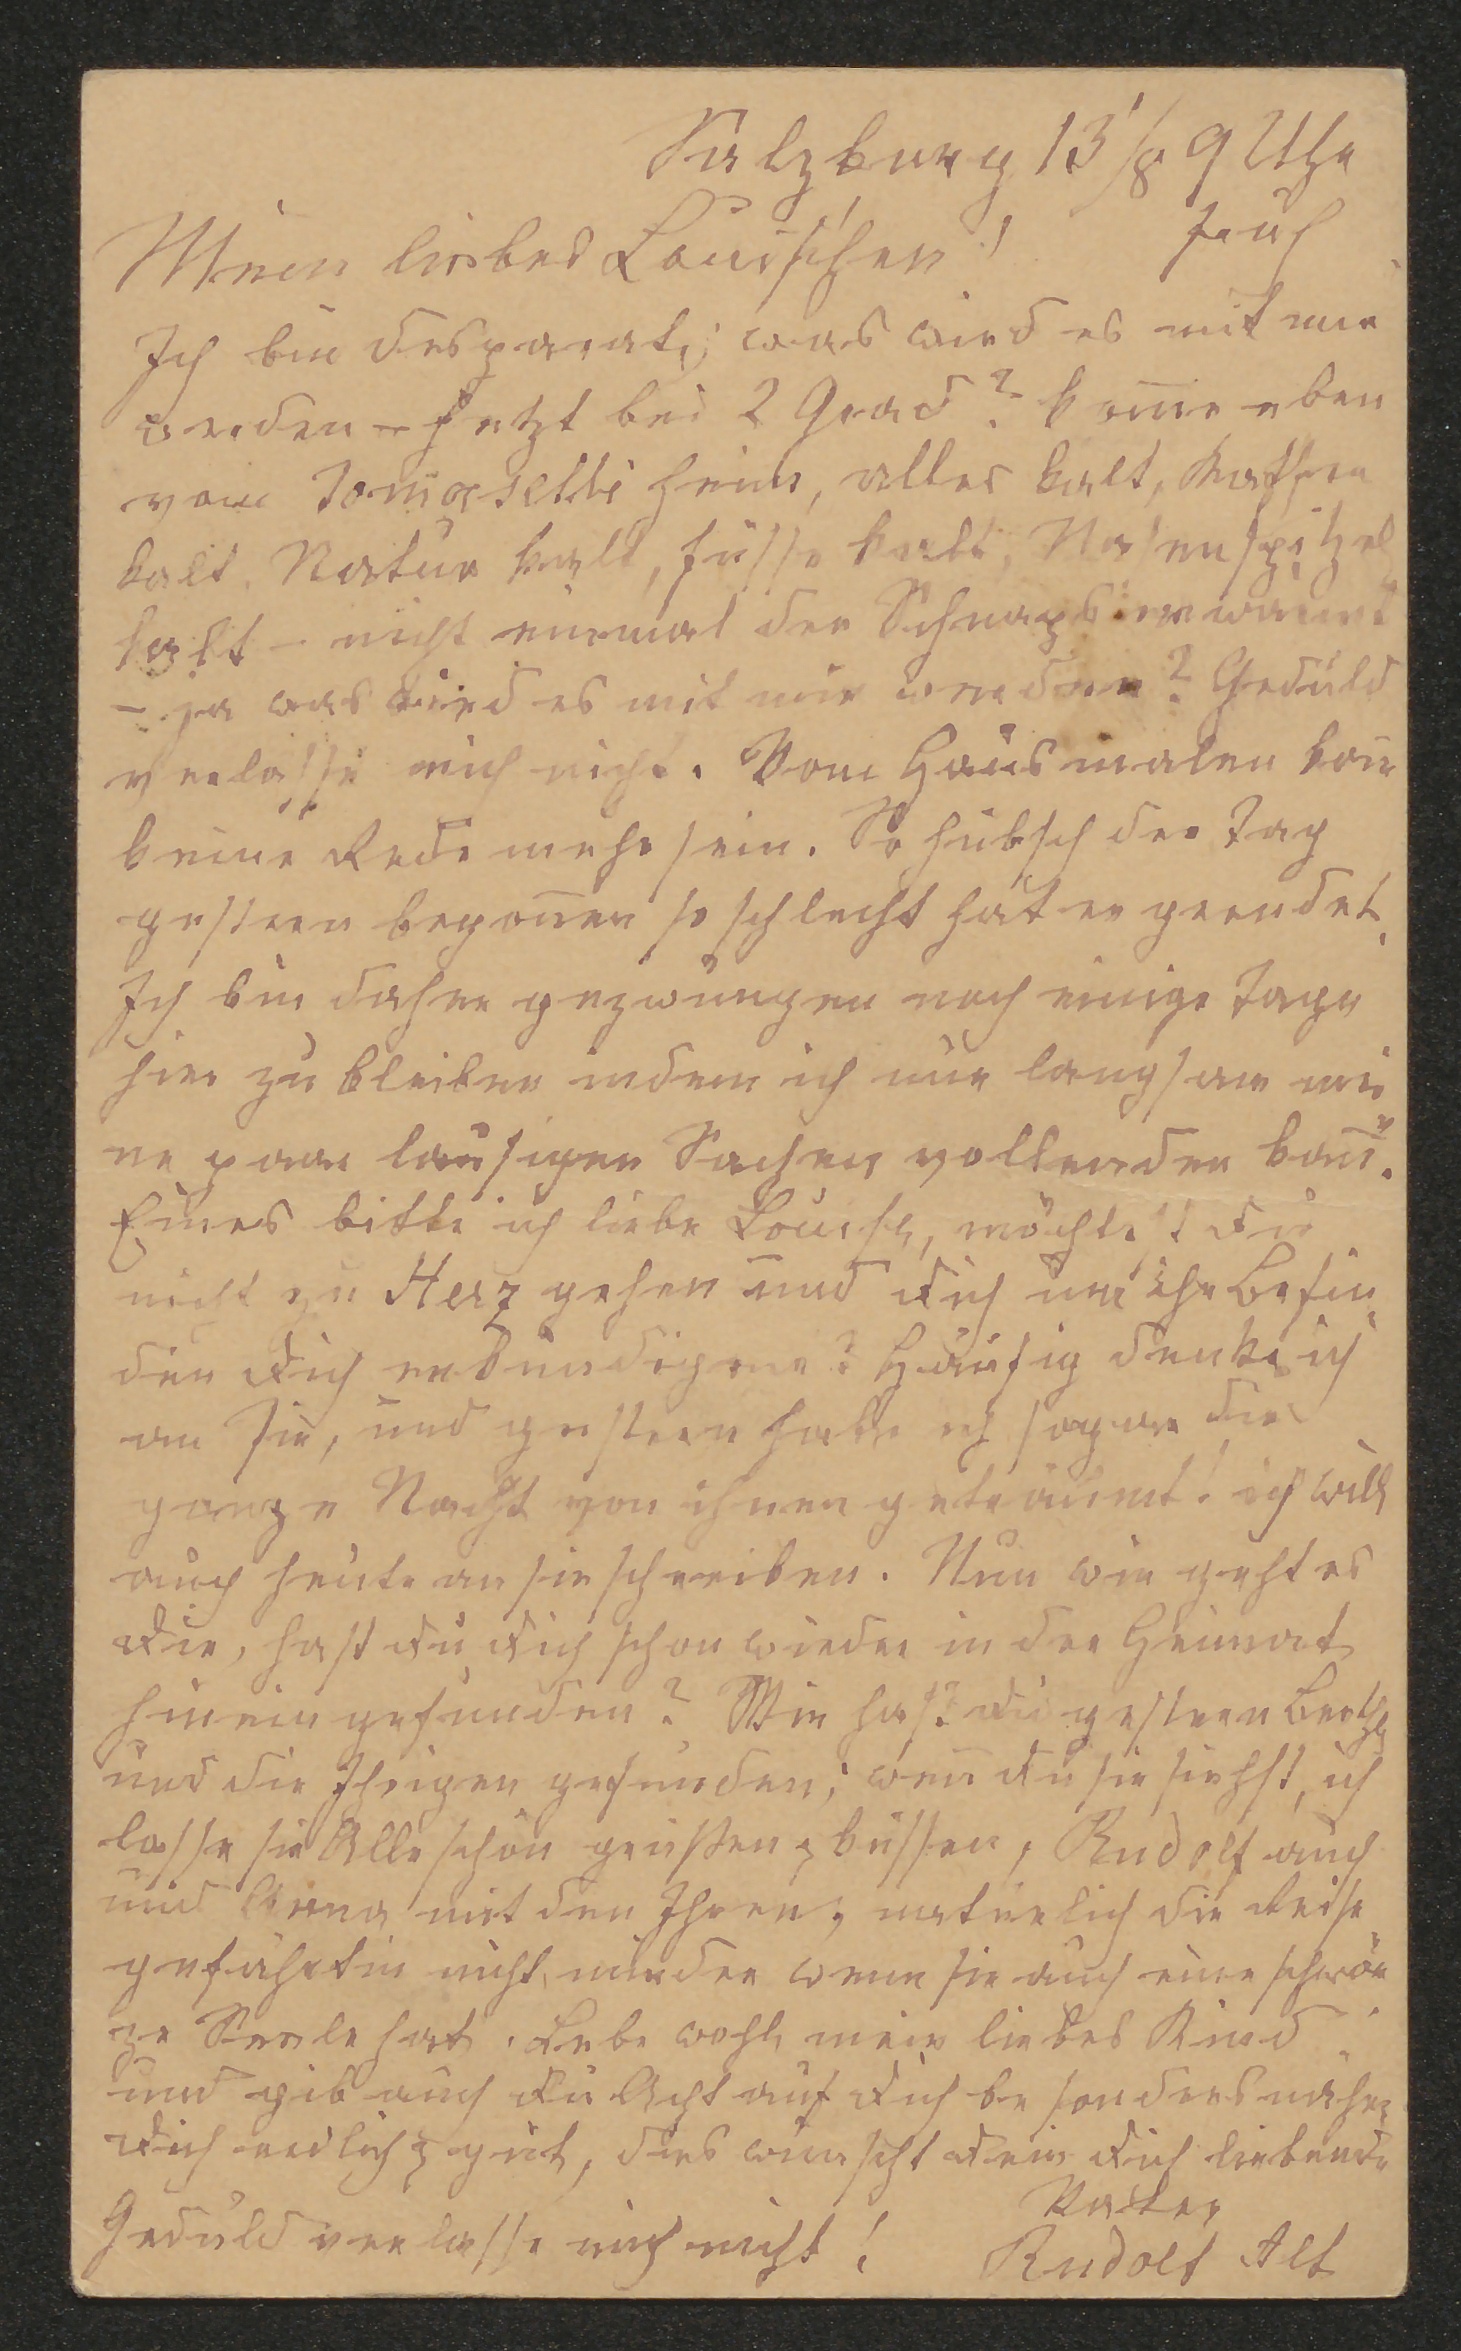 Salzburg 13/8 9 Uhr
Früh
Mein liebes Louischen!
Ich bin desparat; was wird es mit mir
werden – jetzt bei 2 Grad? kom̄e eben
vom Tomaselli heim, alles kalt, Kaffee
kalt, Natur kalt, füsse kalt, Nasenspitzel
kalt – nicht einmal der Schnaps erwärmt
– ja was wird es mit mir werden? Geduld
verlasse mich nicht. Vom Haus malen kan̄
keine Rede mehr sein. So hübsch der Tag
gestern begon̄en so schlecht hat er geendet.
Ich bin daher gezwungen noch einige Tage
hier zu bleiben indem ich nur langsam mei
ne paar lausigen Sachen vollenden kan̄.
Eines bitte ich liebe Louise, möchtest Du
nicht zu Herz gehen und Dich um ihr Befin
den Dich erkundigen? Häufig denke ich
an Sie, und gestern habe ich sogar die
ganze Nacht von ihnen geträumt! ich will
auch heute an sie schreiben. Nun wie geht es
Dir, hast Du Dich schon wieder in der Heimat
hinein gefunden? Wie hast Du gestern Berth
und die Ihrigen gefunden; wen̄ Du sie siehst, ich
lasse sie Alle schön grüßen z küssen, Rudolf auch
und Anna mit den Ihren, natürlich die Reise
gefährtin nicht minder wenn sie auch eine schwar
ze Seele hat. Lebe wohl mein liebes Kind
und gib auch Du Acht auf Dich besonders nähre
Dich redlich z gut, dies wünscht Dein Dich liebender
Vater
Geduld verlasse mich nicht! Rudolf Alt